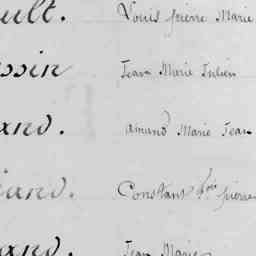 ult. Louis pierre Marie
ssin Jean Marie Julien
and. amand Marie Jean
iand. Constant pierre
and. Jean Marie